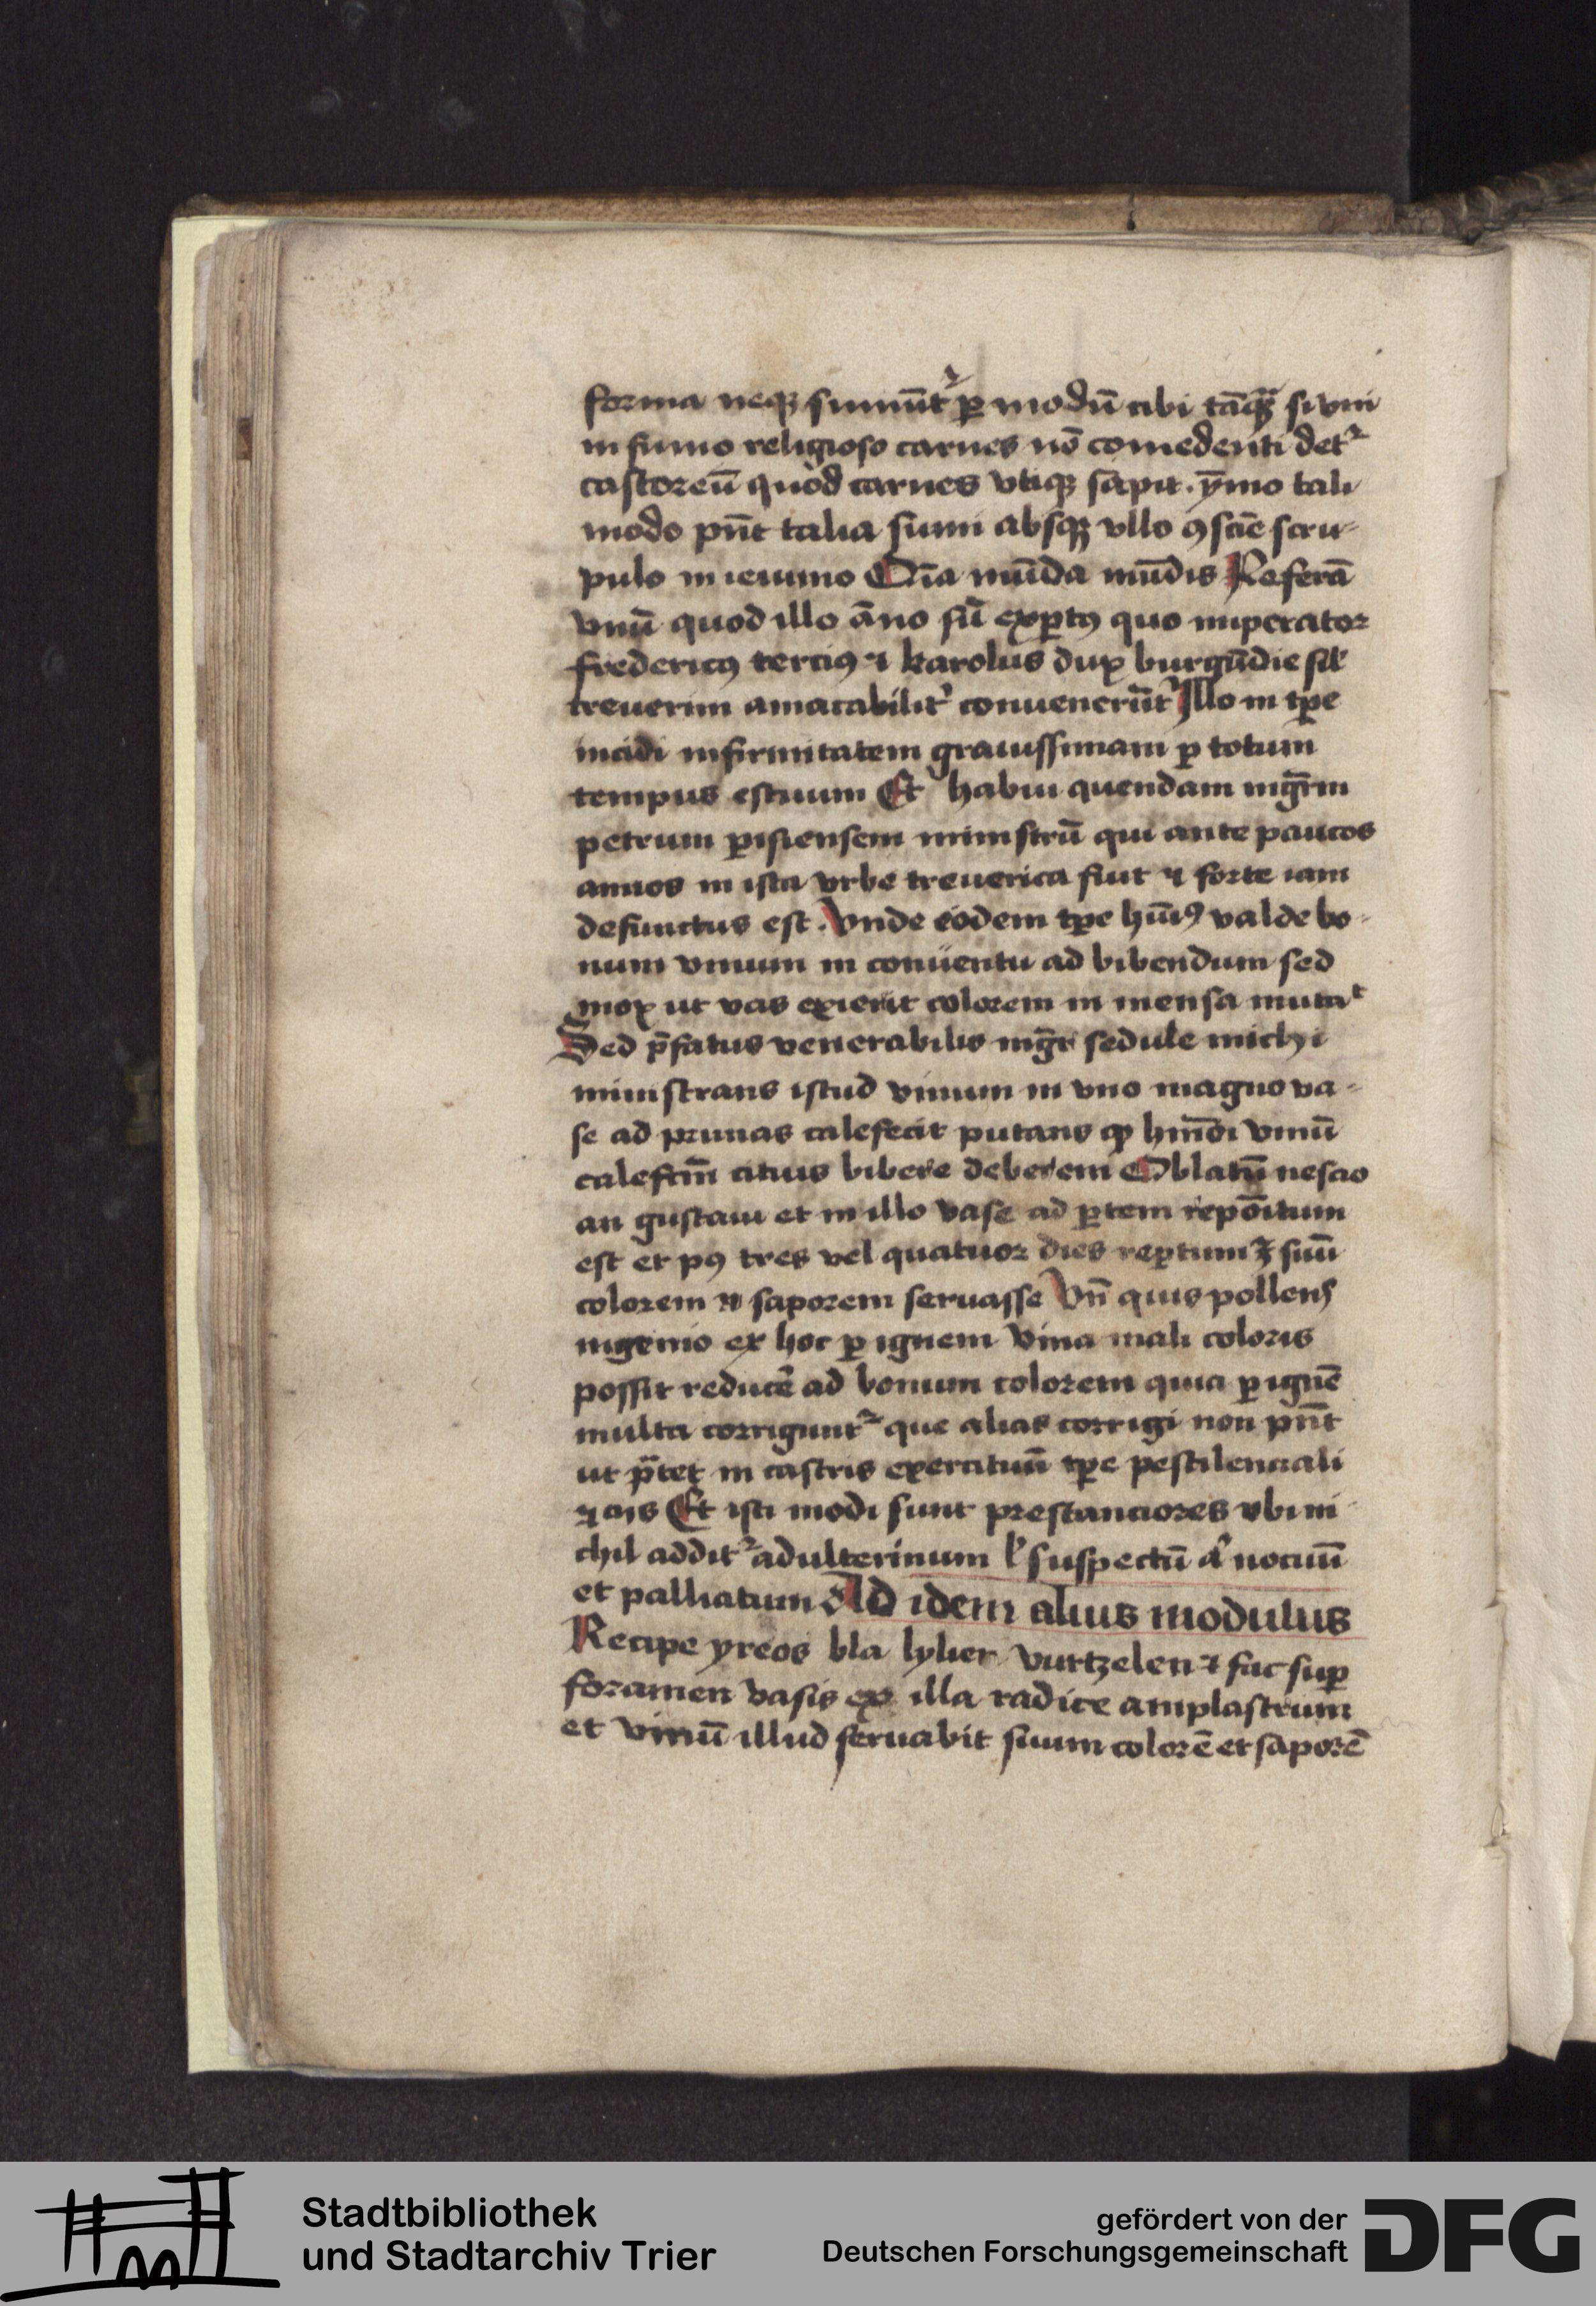 forma neqꝫ sumūtᷣ ꝑ modū cibi tāqꝫ si vni
infirmo religioso carnes nō comedenti detᷣ
castoreū quod carnes vtiqꝫ sapit. ȳmo tali
modo pn̄t talia sumi absqꝫ vllo ꝯsciē scru-
pulo in ieiunio Oīa mūda mūdis Referā
vnū quod illo āno sū exꝑtꝰ quo imperator
fredericꝰ terciꝰ ⁊ karolus dux burgūdie sil̄
treuerim amicabilit᾽ conuenerūt Illo in tꝑe
incidi infirmitatem grauissimam ꝑ totum
tempus estiuum Et habui quendam mgr̄m
petrum ꝑisiensem ministrū qui ante paucos
annos in ista vrbe treuerica fuit ⁊ forte iam
defunctus est. Vnde eodem tꝑe hūiꝰ valde bo-
num vinum in conuentu ad bibendum sed
mox ut vas exierit colorem in mensa mutat
Sed p̄fatus venerabilis mgr̄ sedule michi
ministrans istud vinum in vno magno va-
se ad prunas calefecit putans ꝙ hmōi vinū
calefcm̄ citius bibere deberem Oblatū nescio
an gustaui et in illo vase ad ꝑtem repōitum
est et pꝰ tres vel quatuor dies reꝑtum ē suū
colorem ⁊ saporem seruasse Vn̄ quis pollens
ingenio ex hoc ꝑ ignem vina mali coloris
possit reducē ad bonum colorem quia ꝑ ignē
multa corriguntᷣ que alias corrigi non pn̄t
ut ptet in castris exercituū tꝑe pestilenciali
⁊ cijs Et isti modi sunt prestanciores vbi ni-
chil additᷣ adulterinum l᾽ suspectū a᾽ nociuū
et palliatum Ad idem alius modulus
Recipe yreos bla lylien vurtzelen ⁊ fac suꝑ
foramen vasis ex illa radice amplastrum
et vinū illud seruabit suum colorē et saporē
Stadtbibliothek
und Stadtarchiv Trier
gefördert von der
Deutschen Forschungsgemeinschaft
DFG